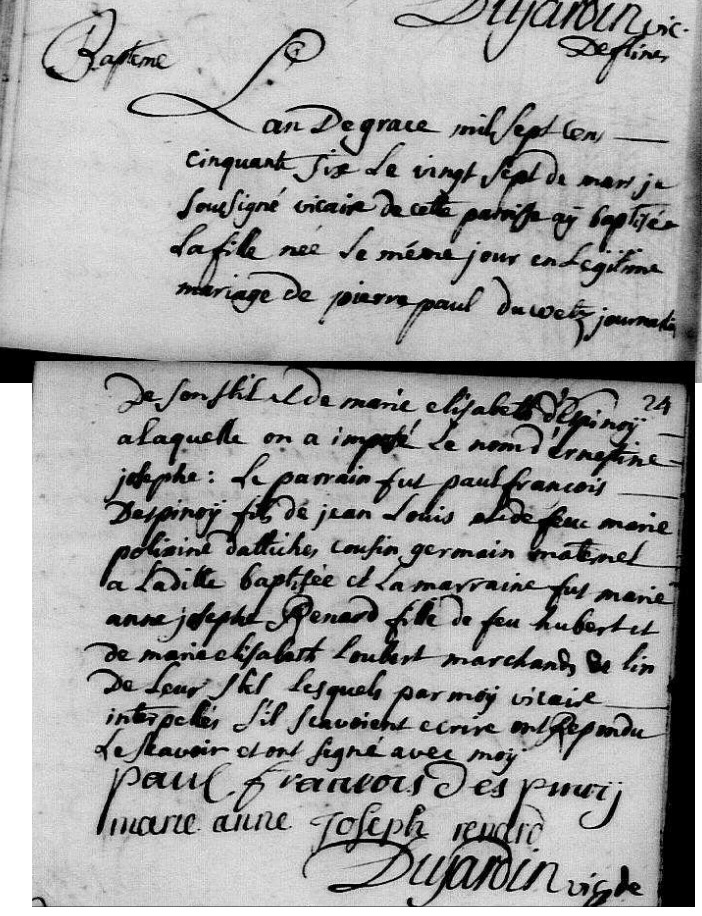 Dujardin vic.
Deflines
Bapteme
Lan De grace mil sept cens
cinquante six Le vingt sept de mars je
sousigné vicaire de cette paroisse aÿ baptisée
La fille née Le méme jour en Legitime
mariage de pierre paul duwetz journalier
24
De son stil et de marie elisabeth d'Espinoÿ
a laquelle on a imposé Le nom d'Ernestine
josephe : Le parrain fut paul francois
Despinoÿ fils de jean Louis et de feuc marie
polixine dattiches cousin germain maternel
a Laditte baptisée et La marraine fut marie
anne josephe Renard fille de feu hubert et
de marie elisabeth Loubert marchands de lin
De Leur stil Lesquels par moÿ vicaire
interpellés s'il scavoient ecrire ont Repondu
Le scavoir et ont signé avec moÿ
paul francois despinoij
marie anne joseph renard
Dujardin vic, de